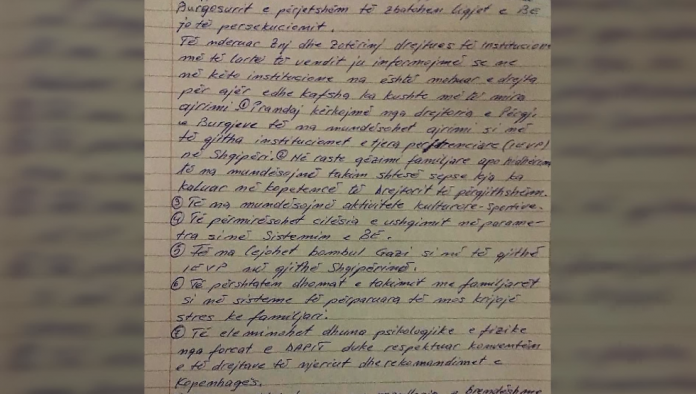 Burgosurit e përjetshëm të zbatohen ligjet e BE
jo të persekucionit.
Të nderuar Znj dhe Zotërinj drejtues të institucionit
më të lartë të vendit ju informojmë se ne
në këto institucione na është mohuar e drejta
për ajër edhe kafsha ka kushte më të mira
ajrimi ① Prandaj kërkojmë nga drejtoria e Përgji
e Burgjeve të na mundësohet ajrimi si në
të gjitha institucionet e tjera penitenciare (IEVP)
në Shqipëri. ② Në raste gëzimi familjare apo hidhërim
të na mundësojmë takim shtesë sepse kjo ka
kaluar në kopetencë të Drejtorit të përgjithshëm.
③ Të na mundësojmë aktivitete kulturore-sportive.
④ Të përmirësohet cilësia e ushqimit në parame-
tra si në Sistemin e BE.
⑤ Të na lejohet bombul Gazi si në të gjithë
IEVP në gjithë Shqipërinë.
⑥ Të përshtaten dhomat e takimit me familjarët
si në sisteme të përparuara të mos krijojë
stres ke familjari.
⑦ Të eleminohet dhuna psikologjike e fizike
nga forcat e DAPIT duke respektuar konventën
e të drejtave të njeriut dhe rekomandimet e
Kopenhagës.